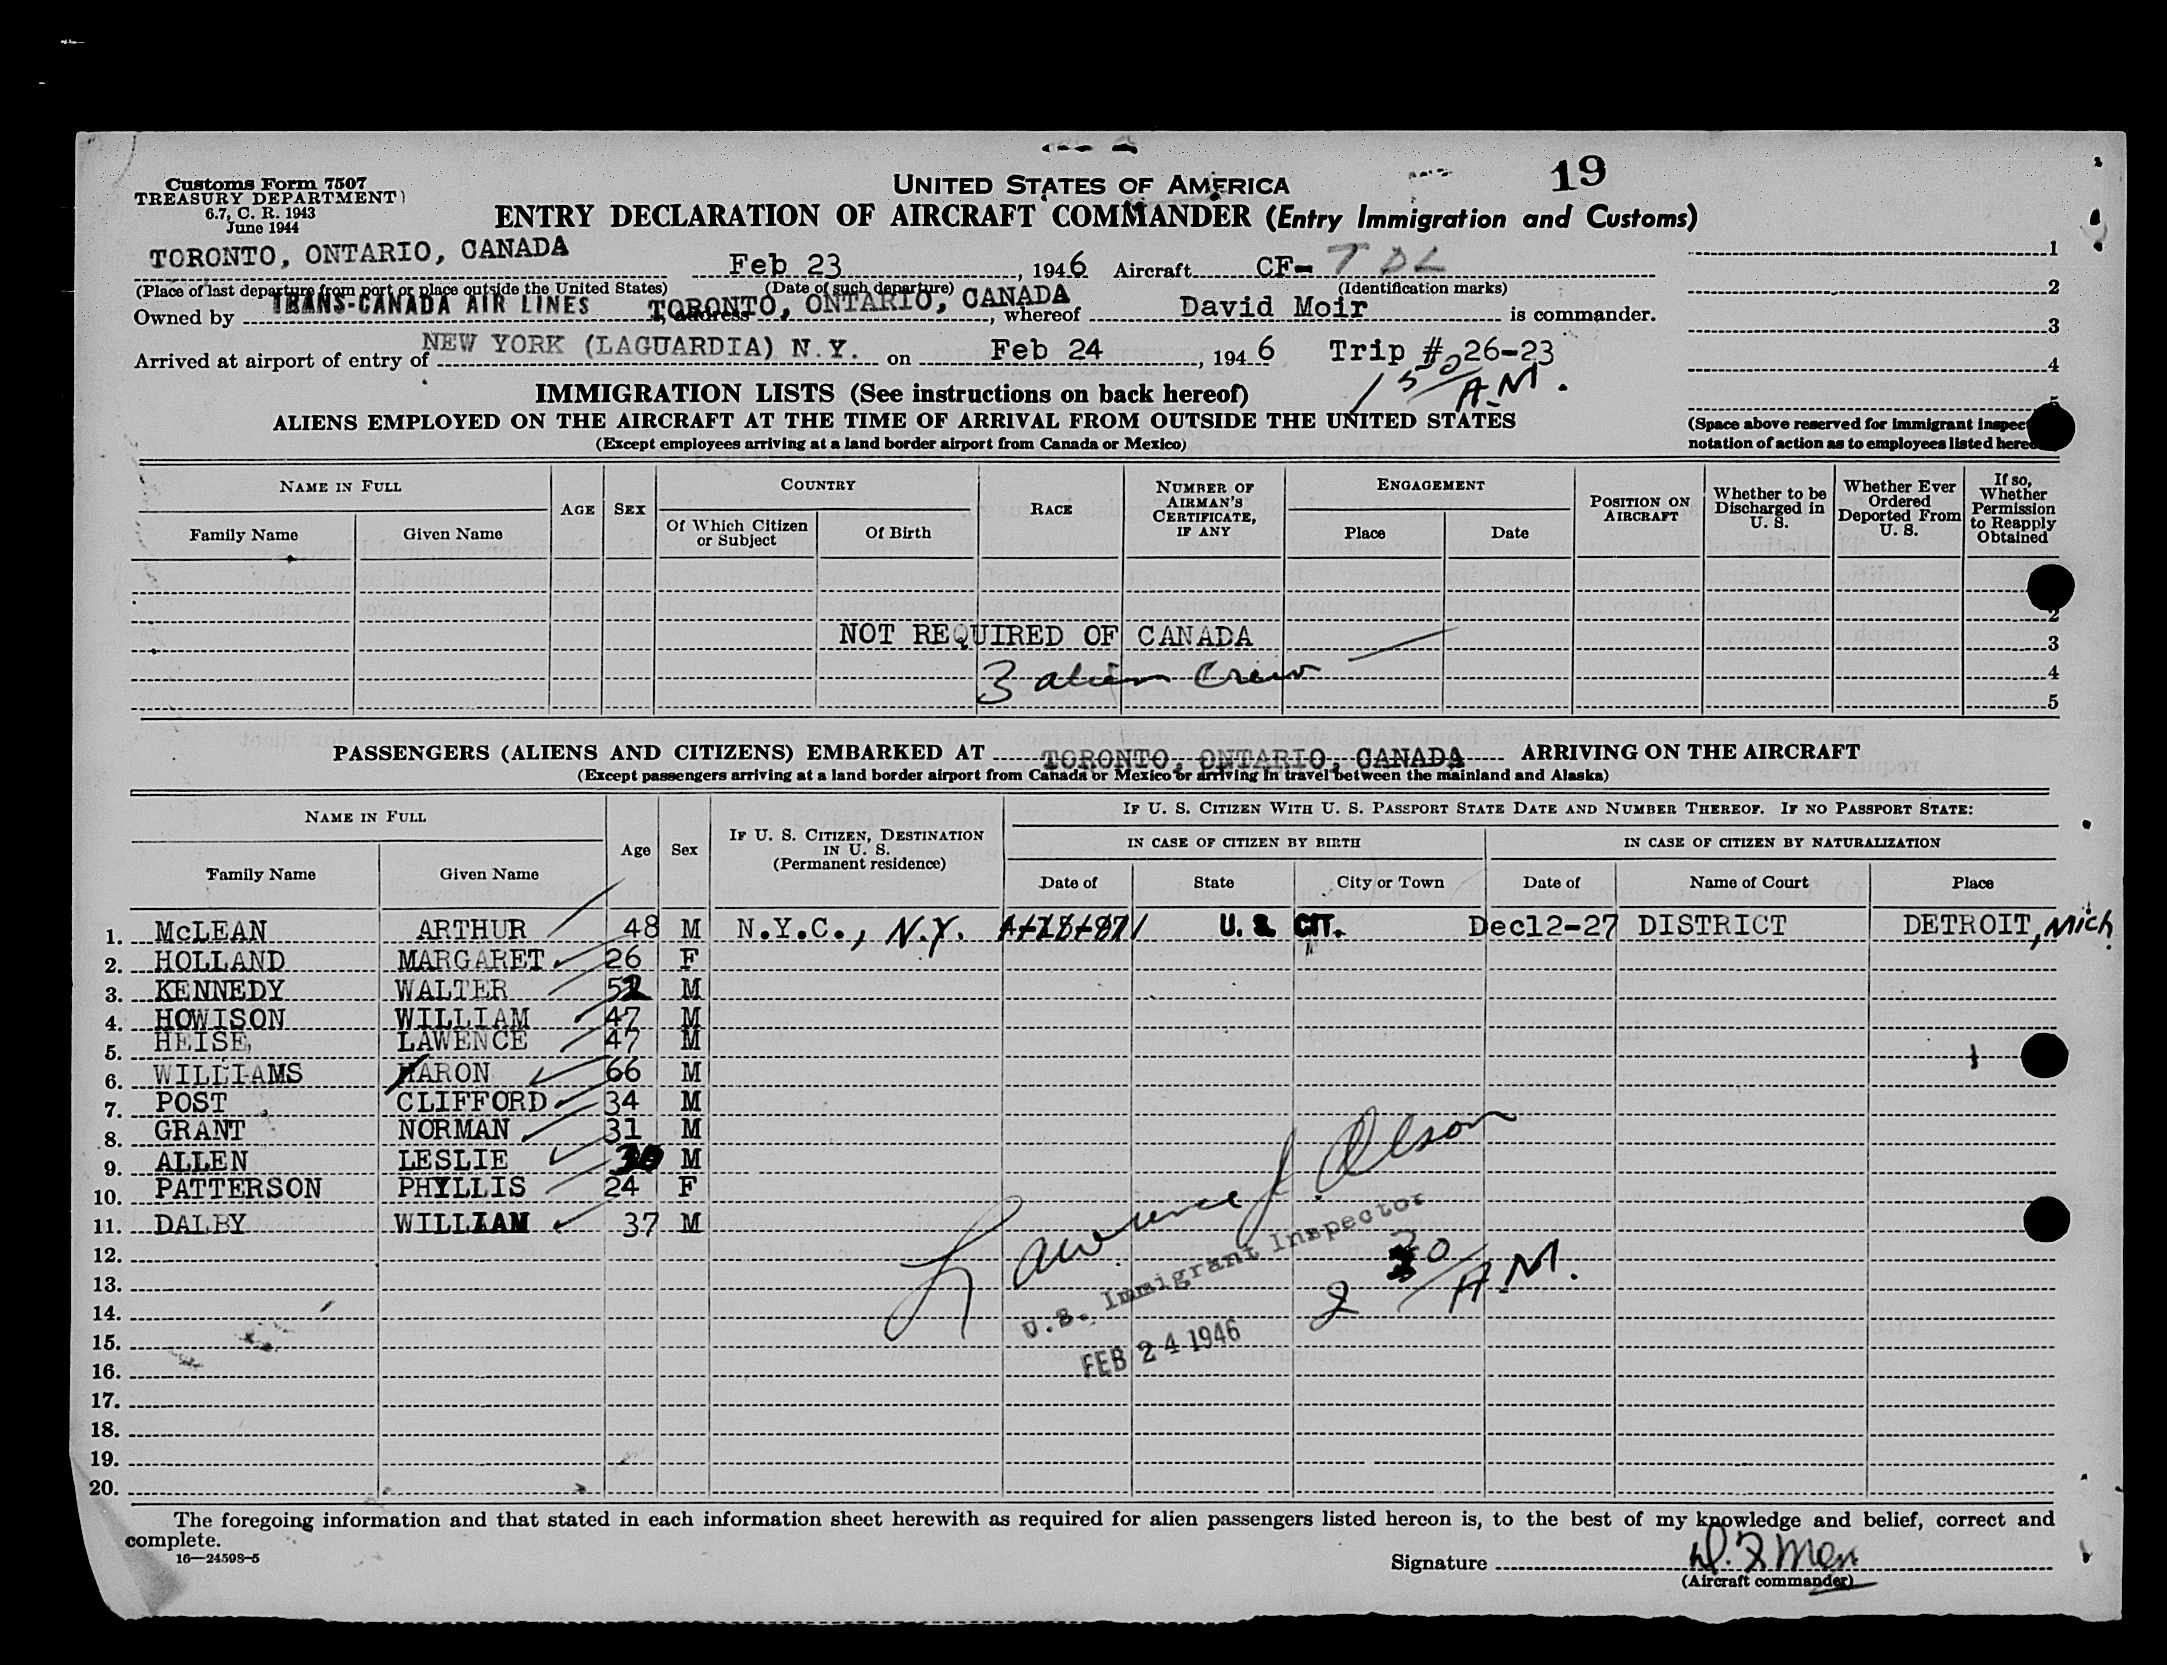 19
Customs Form 7507
TREASURY DEPARTMENT
6.7, C. R. 1943
June 1944
UNITED STATES OF AMERICA
ENTRY DECLARATION OF AIRCRAFT COMMANDER (Entry Immigration and Customs)
TORONTO, ONTARIO, CANADA Feb 23, 1946 Aircraft CF-TDL 1
(Place of last departure from port or place outside the United States) (Date of such departure) (Identification marks) 2
Owned by TRANS-CANADA AIR LINES, address TORONTO, ONTARIO, CANADA, whereof David Moir is commander. 3
Arrived at airport of entry of NEW YORK (LAGUARDIA) N.Y. on Feb 24, 1946 Trip # 26-23 4
1 50/A.M. 5
IMMIGRATION LISTS (See instructions on back hereof)
ALIENS EMPLOYED ON THE AIRCRAFT AT THE TIME OF ARRIVAL FROM OUTSIDE THE UNITED STATES
(Except employees arriving at a land border airport from Canada or Mexico)
(Space above reserved for immigrant
notation of action as to employees listed
NAME IN FULL AGE SEX COUNTRY RACE NUMBER OF AIRMAN'S CERTIFICATE, IF ANY ENGAGEMENT POSITION ON AIRCRAFT Whether to be Discharged in U. S. Whether Ever Ordered Deported From U. S. If so, Whether Permission to Reapply Obtained
Family Name Given Name Of Which Citizen or Subject Of Birth Place Date
2
NOT REQUIRED OF CANADA 3
3 alien Crew 4
5
PASSENGERS (ALIENS AND CITIZENS) EMBARKED AT TORONTO, ONTARIO, CANADA ARRIVING ON THE AIRCRAFT
(Except passengers arriving at a land border airport from Canada or Mexico or arriving in travel between the mainland and Alaska)
NAME IN FULL Age Sex IF U. S. CITIZEN, DESTINATION IN U. S. (Permanent residence) IF U. S. CITIZEN WITH U. S. PASSPORT STATE DATE AND NUMBER THEREOF. IF NO PASSPORT STATE:
IN CASE OF CITIZEN BY BIRTH IN CASE OF CITIZEN BY NATURALIZATION
Family Name Given Name Date of State City or Town Date of Name of Court Place
1. McLEAN ARTHUR 48 M N.Y.C., N.Y. U. S. CIT. Dec12-27 DISTRICT DETROIT, Mich
2. HOLLAND MARGARET 26 F
3. KENNEDY WALTER 52 M
4. HOWISON WILLIAM 47 M
5. HEISE, LAWENCE 47 M
6. WILLIAMS AARON 66 M
7. POST CLIFFORD 34 M
8. GRANT NORMAN 31 M
9. ALLEN LESLIE 30 M
10. PATTERSON PHYLLIS 24 F
11. DALBY WILLIAM 37 M
12.
13.
14.
15.
16.
17.
18.
19.
20.
Lawrence J. Olson
U.S. Immigrant Inspector
2 30/A.M.
FEB 24 1946
The foregoing information and that stated in each information sheet herewith as required for alien passengers listed hereon is, to the best of my knowledge and belief, correct and
complete.
16—24598-5
Signature D. F. Moir
(Aircraft commander)